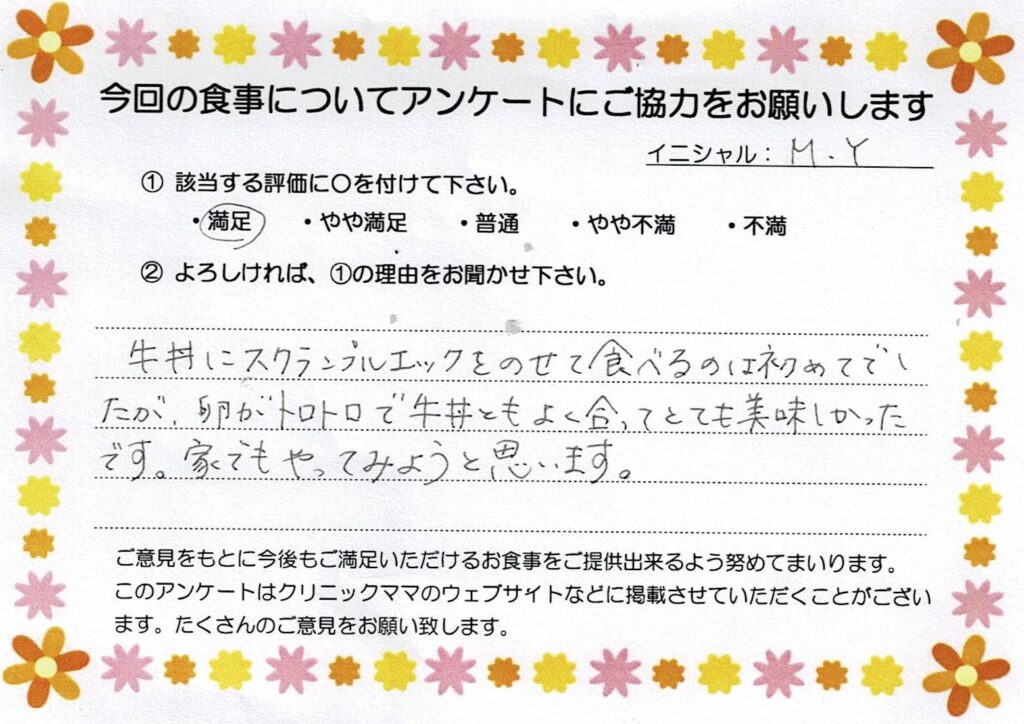 今回の食事についてアンケートにご協力をお願いします
イニシャル： M．Y
① 該当する評価に〇を付けて下さい。
・満足 ・やや満足 ・普通 ・やや不満 ・不満
② よろしければ、①の理由をお聞かせ下さい。
牛丼にスクランブルエッグをのせて食べるのは初めてでし
たが、卵がトロトロで牛丼ともよく合ってとても美味しかった
です。家でもやってみようと思います。
ご意見をもとに今後もご満足いただけるお食事をご提供出来るよう努めてまいります。
このアンケートはクリニックママのウェブサイトなどに掲載させていただくことがござい
ます。たくさんのご意見をお願い致します。